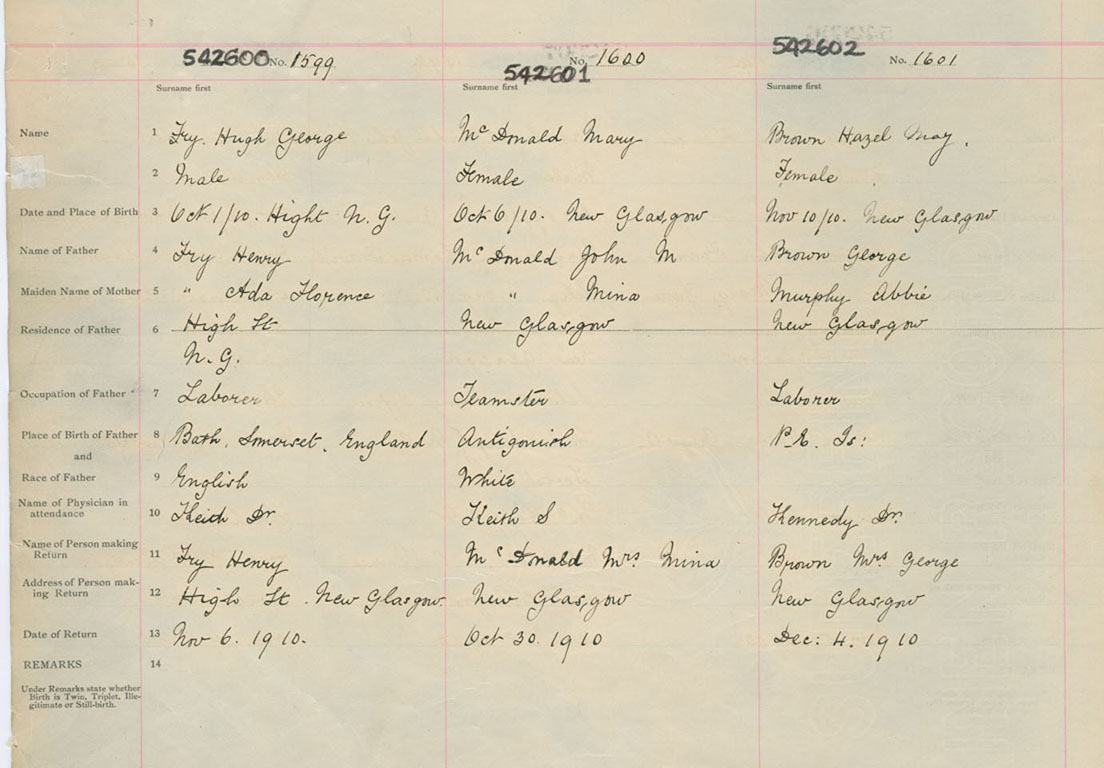 542600 No. 1599 542601 No. 1600 542602 No. 1601
Surname first Surname first Surname first
Name 1 Fry. Hugh George McDonald Mary Brown Hazel May.
2 Male Female Female
Date and Place of Birth 3 Oct 1/10. Hight N. G. Oct 6/10. New Glasgow Nov 10/10. New Glasgow
Name of Father 4 Fry Henry McDonald John M Brown George
Maiden Name of Mother 5 " Ada Florence " Mina Murphy Abbie
Residence of Father 6 High St New Glasgow New Glasgow
N. G.
Occupation of Father 7 Laborer Teamster Laborer
Place of Birth of Father 8 Bath, Somerset, England Antigonish P. E. Is:
and
Race of Father 9 English White
Name of Physician in
attendance 10 Keith Dr. Keith S Kennedy Dr.
Name of Person making
Return 11 Fry Henry McDonald Mrs. Mina Brown Mrs George
Address of Person mak-
ing Return 12 High St. New Glasgow. New Glasgow New Glasgow
Date of Return 13 Nov 6. 1910. Oct 30. 1910 Dec: 4. 1910
REMARKS 14
Under Remarks state whether
Birth is Twin, Triplet, Ille-
gitimate or Still-birth.